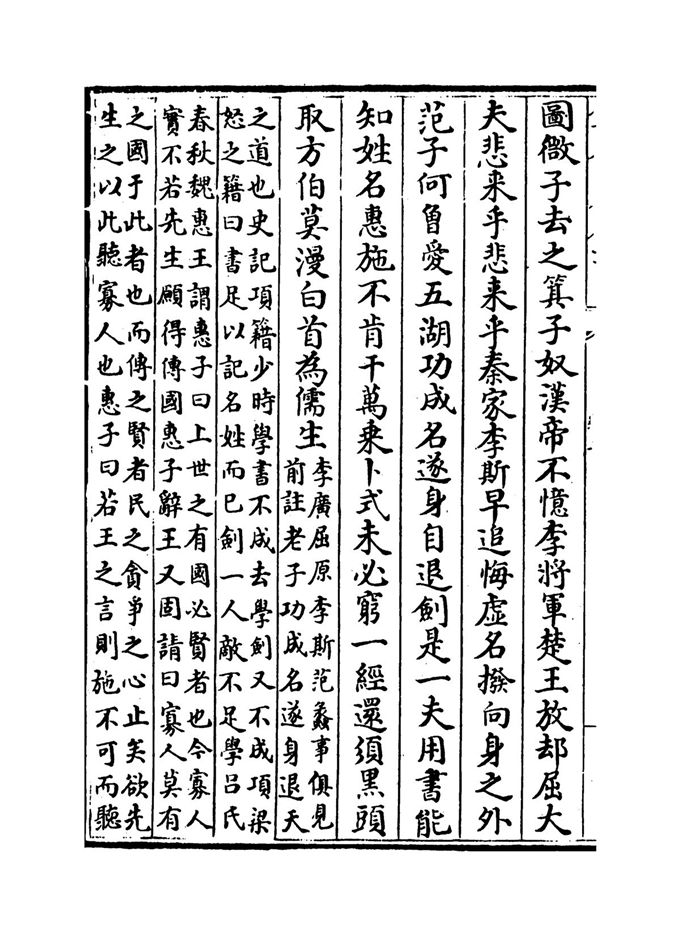 圖微子去之箕子奴漢帝不憶李將軍楚王放却屈大
夫悲来乎悲来乎秦家李斯早追悔虚名撥向身之外
范子何曾愛五湖功成名遂身自退劍是一夫用書能
知姓名惠施不肯干萬乘卜式未必窮一經還須黒頭
取方伯莫漫白首為儒生
李廣屈原李斯范蠡事俱見
前註老子功成名遂身退天
之道也史記項籍少時學書不成去學劍又不成項梁
怒之籍曰書足以記名姓而已劍一人敵不足學吕氏
春秋魏惠王謂惠子曰上世之有國必賢者也今寡人
實不若先生願得傳國惠子辭王又固請曰寡人莫有
之國于此者也而傳之賢者民之貪爭之心止矣欲先
生之以此聽寡人也惠子曰若王之言則施不可而聽